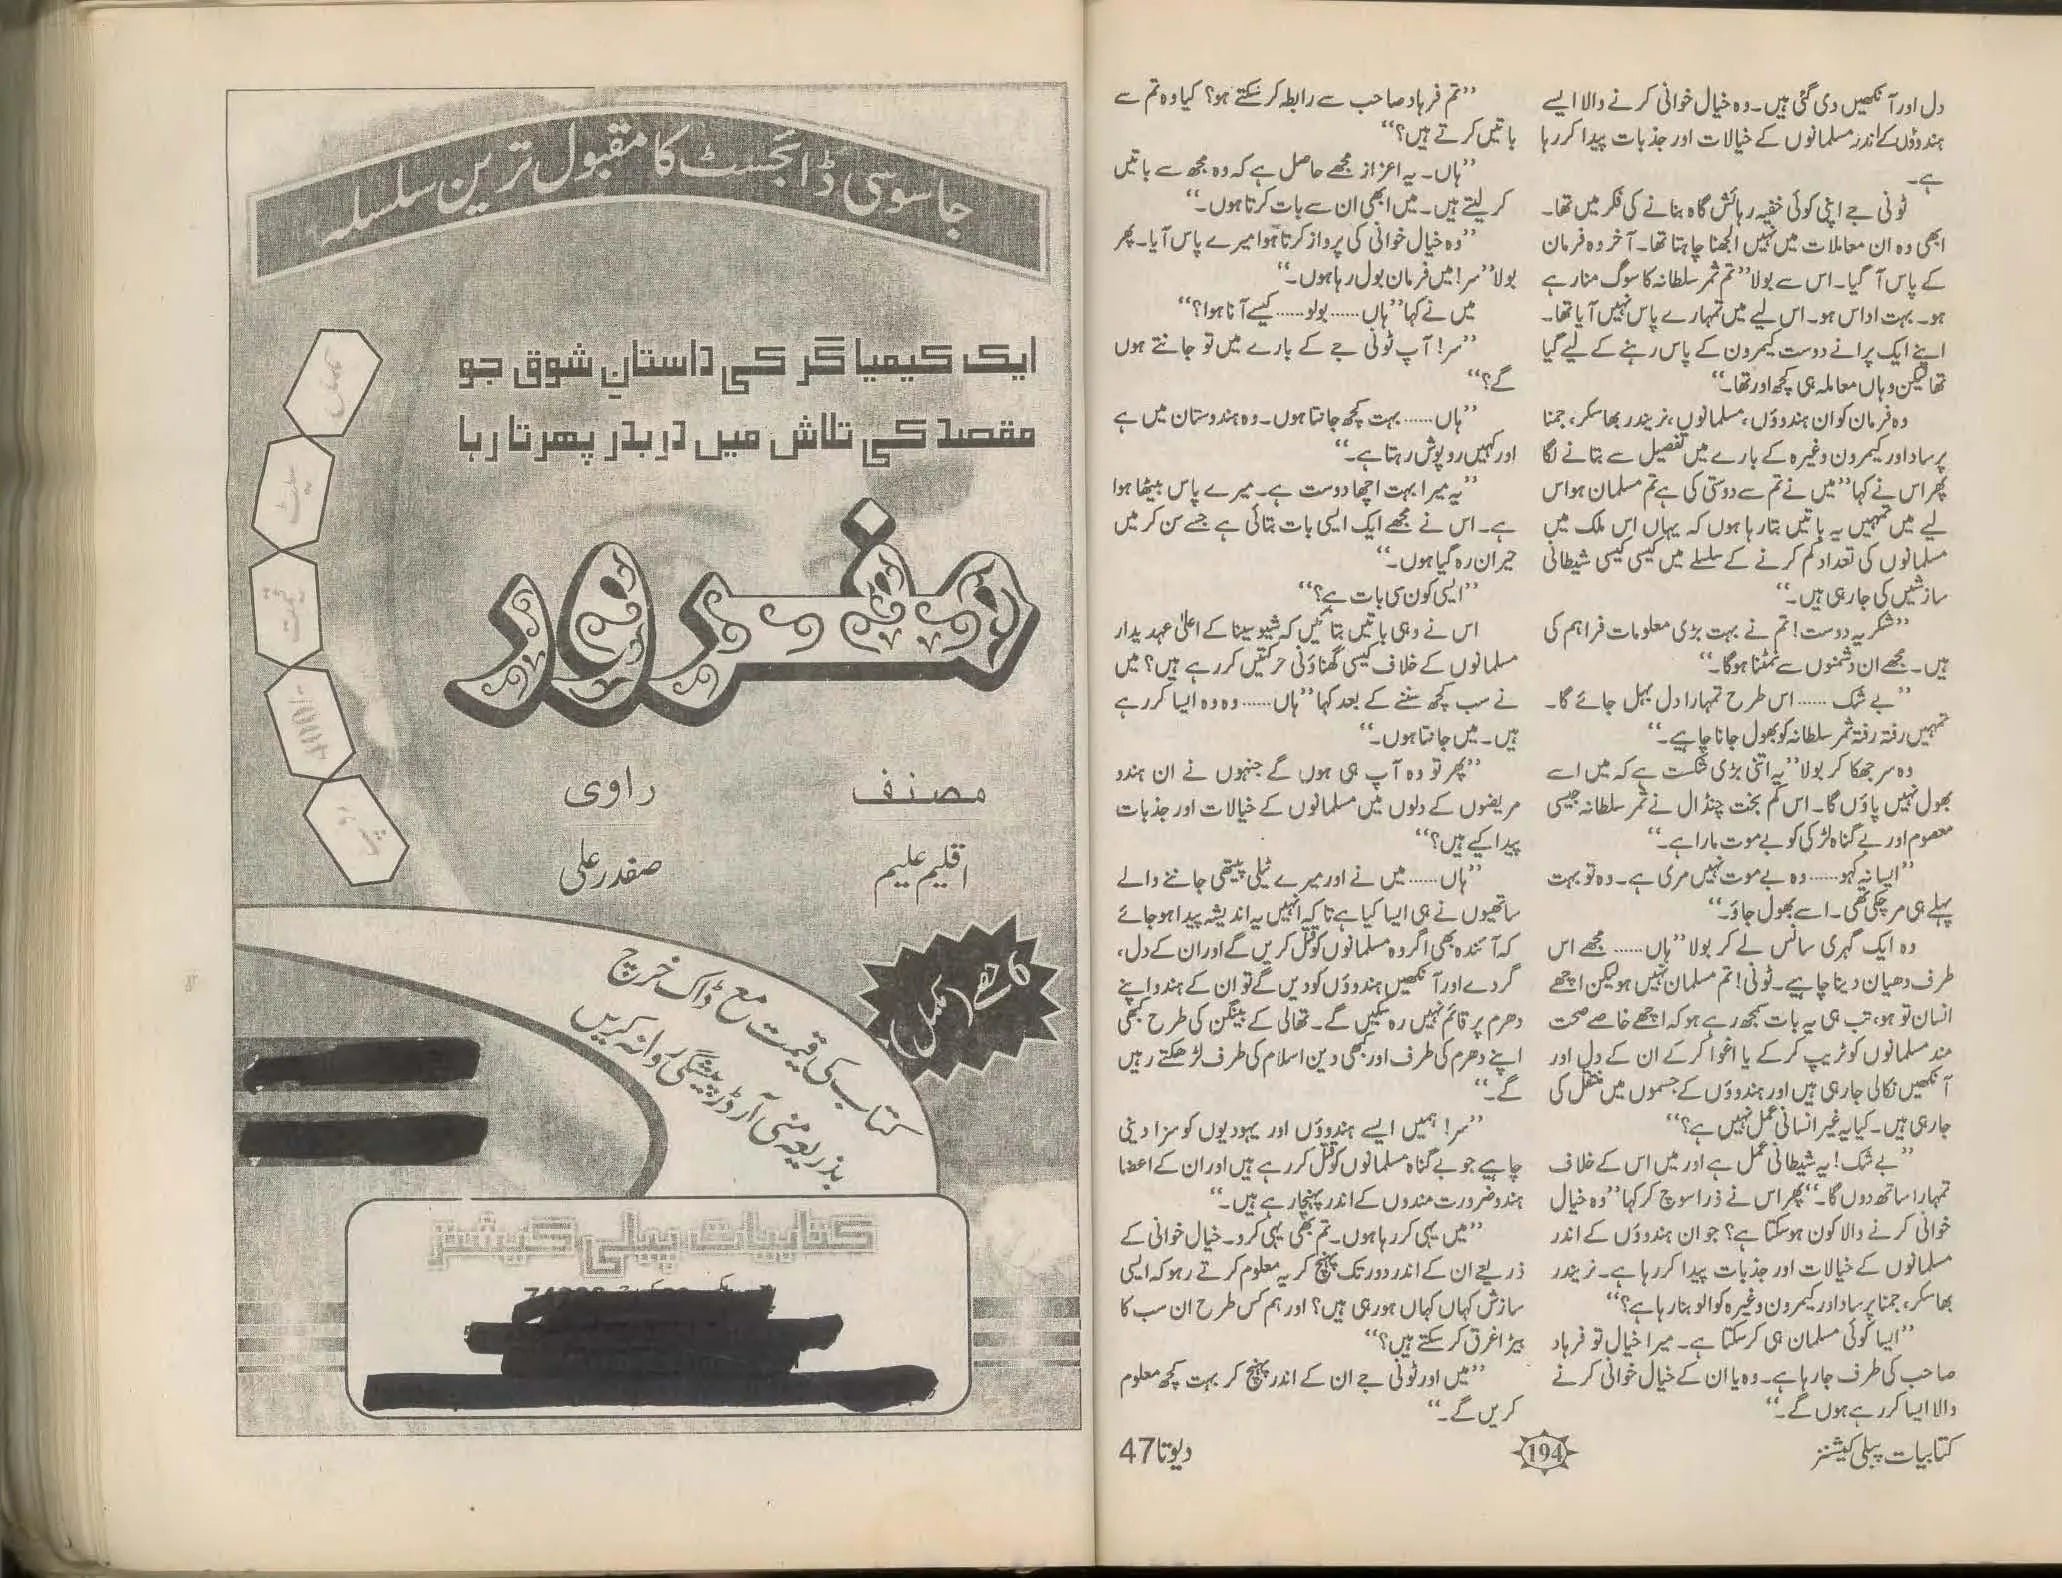 دل اور آنکھیں دی گئی ہیں۔ وہ خیال خوانی کرنے والا ایسے
ہندوؤں کے اندر مسلمانوں کے خیالات اور جذبات پیدا کر رہا
ہے۔
ٹونی جے اپنی کوئی خفیہ رہائش گاہ بنانے کی فکر میں تھا۔
ابھی وہ ان معاملات میں نہیں الجھنا چاہتا تھا۔ آخر وہ فرمان
کے پاس آ گیا۔ اس سے بولا ’’تم ثمر سلطانہ کا سوگ منا رہے
ہو۔ بہت اداس ہو۔ اس لیے میں تمہارے پاس نہیں آیا تھا۔
اپنے ایک پرانے دوست کیمرون کے پاس رہنے کے لیے گیا
تھا لیکن وہاں معاملہ ہی کچھ اور تھا۔‘‘
وہ فرمان کو ان ہندوؤں، مسلمانوں، نریندر بھاسکر، جمنا
پرساد اور کیمرون وغیرہ کے بارے میں تفصیل سے بتانے لگا
پھر اس نے کہا ’’میں نے تم سے دوستی کی ہے تم مسلمان ہو اس
لیے میں تمہیں یہ باتیں بتا رہا ہوں کہ یہاں اس ملک میں
مسلمانوں کی تعداد کم کرنے کے سلسلے میں کیسی کیسی شیطانی
سازشیں کی جا رہی ہیں۔‘‘
’’شکریہ دوست! تم نے بہت بڑی معلومات فراہم کی
ہیں۔ مجھے ان دشمنوں سے نمٹنا ہوگا۔‘‘
’’بے شک ...... اس طرح تمہارا دل بہل جائے گا۔
تمہیں رفتہ رفتہ ثمر سلطانہ کو بھول جانا چاہیے۔‘‘
وہ سر جھکا کر بولا ’’یہ اتنی بڑی شکست ہے کہ میں اسے
بھول نہیں پاؤں گا۔ اس کم بخت چنڈال نے ثمر سلطانہ جیسی
معصوم اور بے گناہ لڑکی کو بے موت مارا ہے۔‘‘
’’ایسا نہ کہو...... وہ بے موت نہیں مری ہے۔ وہ تو بہت
پہلے ہی مر چکی تھی۔ اسے بھول جاؤ۔‘‘
وہ ایک گہری سانس لے کر بولا ’’ہاں...... مجھے اس
طرف دھیان دینا چاہیے۔ ٹونی! تم مسلمان نہیں ہو لیکن اچھے
انسان تو ہو، تب ہی یہ بات سمجھ رہے ہو کہ اچھے خاصے صحت
مند مسلمانوں کو ٹریپ کر کے یا اغوا کر کے ان کے دل اور
آنکھیں نکالی جا رہی ہیں اور ہندوؤں کے جسموں میں منتقل کی
جا رہی ہیں۔ کیا یہ غیر انسانی عمل نہیں ہے؟‘‘
’’بے شک! یہ شیطانی عمل ہے اور میں اس کے خلاف
تمہارا ساتھ دوں گا۔‘‘ پھر اس نے ذرا سوچ کر کہا ’’وہ خیال
خوانی کرنے والا کون ہو سکتا ہے؟ جو ان ہندوؤں کے اندر
مسلمانوں کے خیالات اور جذبات پیدا کر رہا ہے۔ نریندر
بھاسکر، جمنا پرساد اور کیمرون وغیرہ کو الو بنا رہا ہے؟‘‘
’’ایسا کوئی مسلمان ہی کر سکتا ہے۔ میرا خیال تو فرہاد
صاحب کی طرف جا رہا ہے۔ وہ یا ان کے خیال خوانی کرنے
والا ایسا کر رہے ہوں گے۔‘‘
’’تم فرہاد صاحب سے رابطہ کر سکتے ہو؟ کیا وہ تم سے
باتیں کرتے ہیں؟‘‘
’’ہاں۔ یہ اعزاز مجھے حاصل ہے کہ وہ مجھ سے باتیں
کر لیتے ہیں۔ میں ابھی ان سے بات کرتا ہوں۔‘‘
’’وہ خیال خوانی کی پرواز کرتا ہوا میرے پاس آیا۔ پھر
بولا ’’سر! میں فرمان بول رہا ہوں۔‘‘
میں نے کہا ’’ہاں...... بولو...... کیسے آنا ہوا؟‘‘
’’سر! آپ ٹونی جے کے بارے میں تو جانتے ہوں
گے؟‘‘
’’ہاں...... بہت کچھ جانتا ہوں۔ وہ ہندوستان میں ہے
اور کہیں روپوش رہتا ہے۔‘‘
’’یہ میرا بہت اچھا دوست ہے۔ میرے پاس بیٹھا ہوا
ہے۔ اس نے مجھے ایک ایسی بات بتائی ہے جسے سن کر میں
حیران رہ گیا ہوں۔‘‘
’’ایسی کون سی بات ہے؟‘‘
اس نے وہی باتیں بتائیں کہ شیو سینا کے اعلیٰ عہدیدار
مسلمانوں کے خلاف کیسی گھناؤنی حرکتیں کر رہے ہیں؟ میں
نے سب کچھ سننے کے بعد کہا ’’ہاں...... وہ وہ ایسا کر رہے
ہیں۔ میں جانتا ہوں۔‘‘
’’پھر تو وہ آپ ہی ہوں گے جنہوں نے ان ہندو
مریضوں کے دلوں میں مسلمانوں کے خیالات اور جذبات
پیدا کیے ہیں؟‘‘
’’ہاں...... میں نے اور میرے ٹیلی پیتھی جاننے والے
ساتھیوں نے ہی ایسا کیا ہے تاکہ انہیں یہ اندیشہ پیدا ہو جائے
کہ آئندہ بھی اگر وہ مسلمانوں کو قتل کریں گے اور ان کے دل،
گردے اور آنکھیں ہندوؤں کو دیں گے تو ان کے ہندو اپنے
دھرم پر قائم نہیں رہ سکیں گے۔ تھالی کے بینگن کی طرح کبھی
اپنے دھرم کی طرف اور کبھی دین اسلام کی طرف لڑھکتے رہیں
گے۔‘‘
’’سر! ہمیں ایسے ہندوؤں اور یہودیوں کو سزا دینی
چاہیے جو بے گناہ مسلمانوں کو قتل کر رہے ہیں اور ان کے اعضا
ہندو ضرورت مندوں کے اندر پہنچا رہے ہیں۔‘‘
’’میں یہی کر رہا ہوں۔ تم بھی یہی کرو۔ خیال خوانی کے
ذریعے ان کے اندر دور تک پہنچ کر یہ معلوم کرتے رہو کہ ایسی
سازش کہاں کہاں ہو رہی ہیں؟ اور ہم کس طرح ان سب کا
بیڑا غرق کر سکتے ہیں؟‘‘
’’میں اور ٹونی جے ان کے اندر پہنچ کر بہت کچھ معلوم
کریں گے۔‘‘
کتابیات پبلی کیشنز
194
دیوتا 47
جاسوسی ڈائجسٹ کا مقبول ترین سلسلہ
ایک کیمیا گر کی داستانِ شوق جو
مقصد کی تلاش میں در بدر پھرتا رہا
مفرور
مصنف
اقلیم علیم
راوی
صفدر علی
مکمل
سیٹ
قیمت
6 حصے (مکمل)
کتاب کی قیمت مع ڈاک خرچ
بذریعہ منی آرڈر پیشگی روانہ کریں
کتابیات پبلی کیشنز